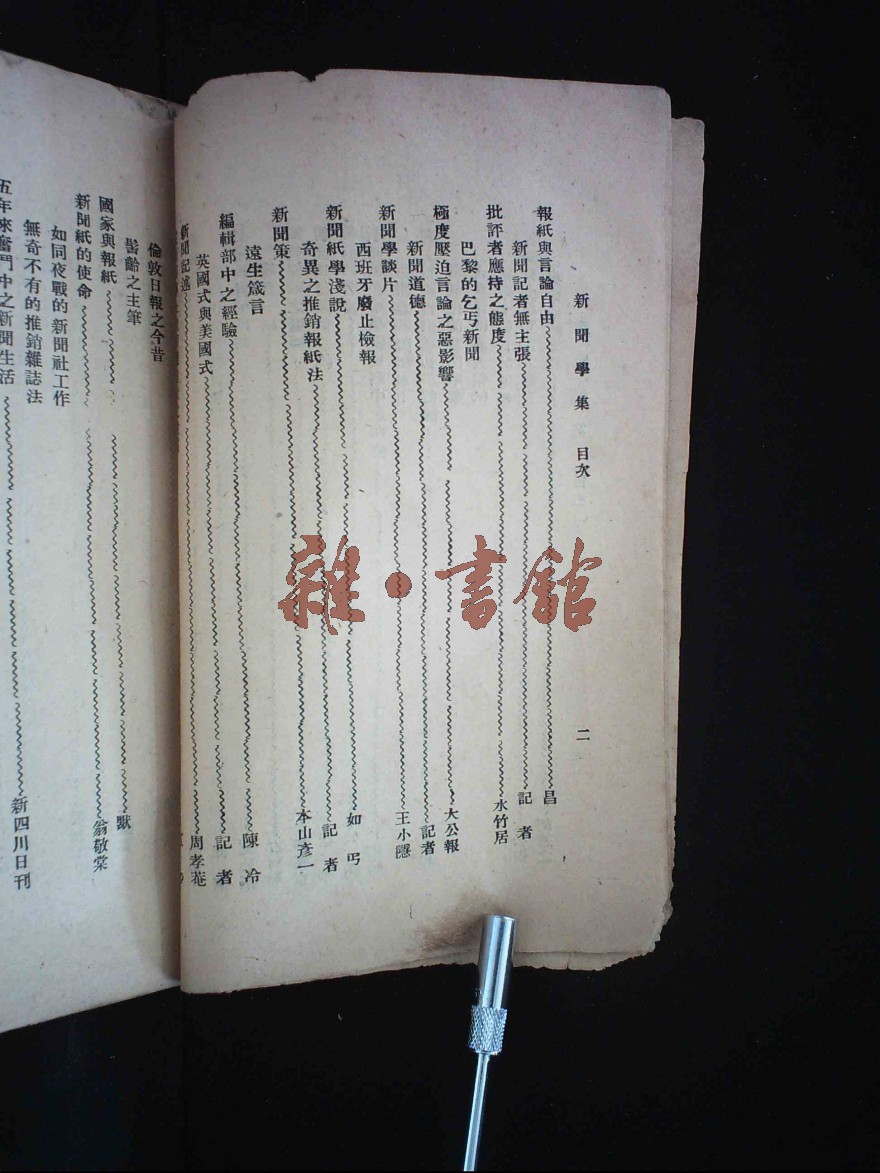 新聞學集 目次 二
報紙與言論自由 昌
新聞記者無主張 記者
批評者應持之態度 水竹居
巴黎的乞丐新聞
極度壓迫言論之惡影響 大公報
新聞道德 記者
新聞學談片 王小隱
西班牙廢止檢報
新聞紙學淺說 如丐
奇異之推銷報紙法 記者
新聞策 本山彥一
遠生箴言
編輯部中之經驗 陳冷
英國式與美國式 記者
新聞記述 周孝菴
倫敦日報之今昔
髫齡之主筆
國家與報紙 默
新聞紙的使命 翁敬棠
如同夜戰的新聞社工作
無奇不有的推銷雜誌法
五年來奮鬥中之新聞生活 新四川日刊
雜·書館